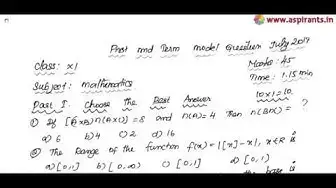 www.aspirants.in
First mid Term model Question July 2019
Class: XI
Marks: 45
Subject: mathematics
Time: 1.15 min
Part I. Choose the Best Answer
10x1=10.
① If n(BxC)=8 and n(A)=4 Then n(BXC)= ?
a) 6 b) 4 c) 2 d) 16
② The Range of the function f(x)=|[x]-x|, x∈R is
a) [0,1] b) [0,∞) c) [0,1] d) (0,1)